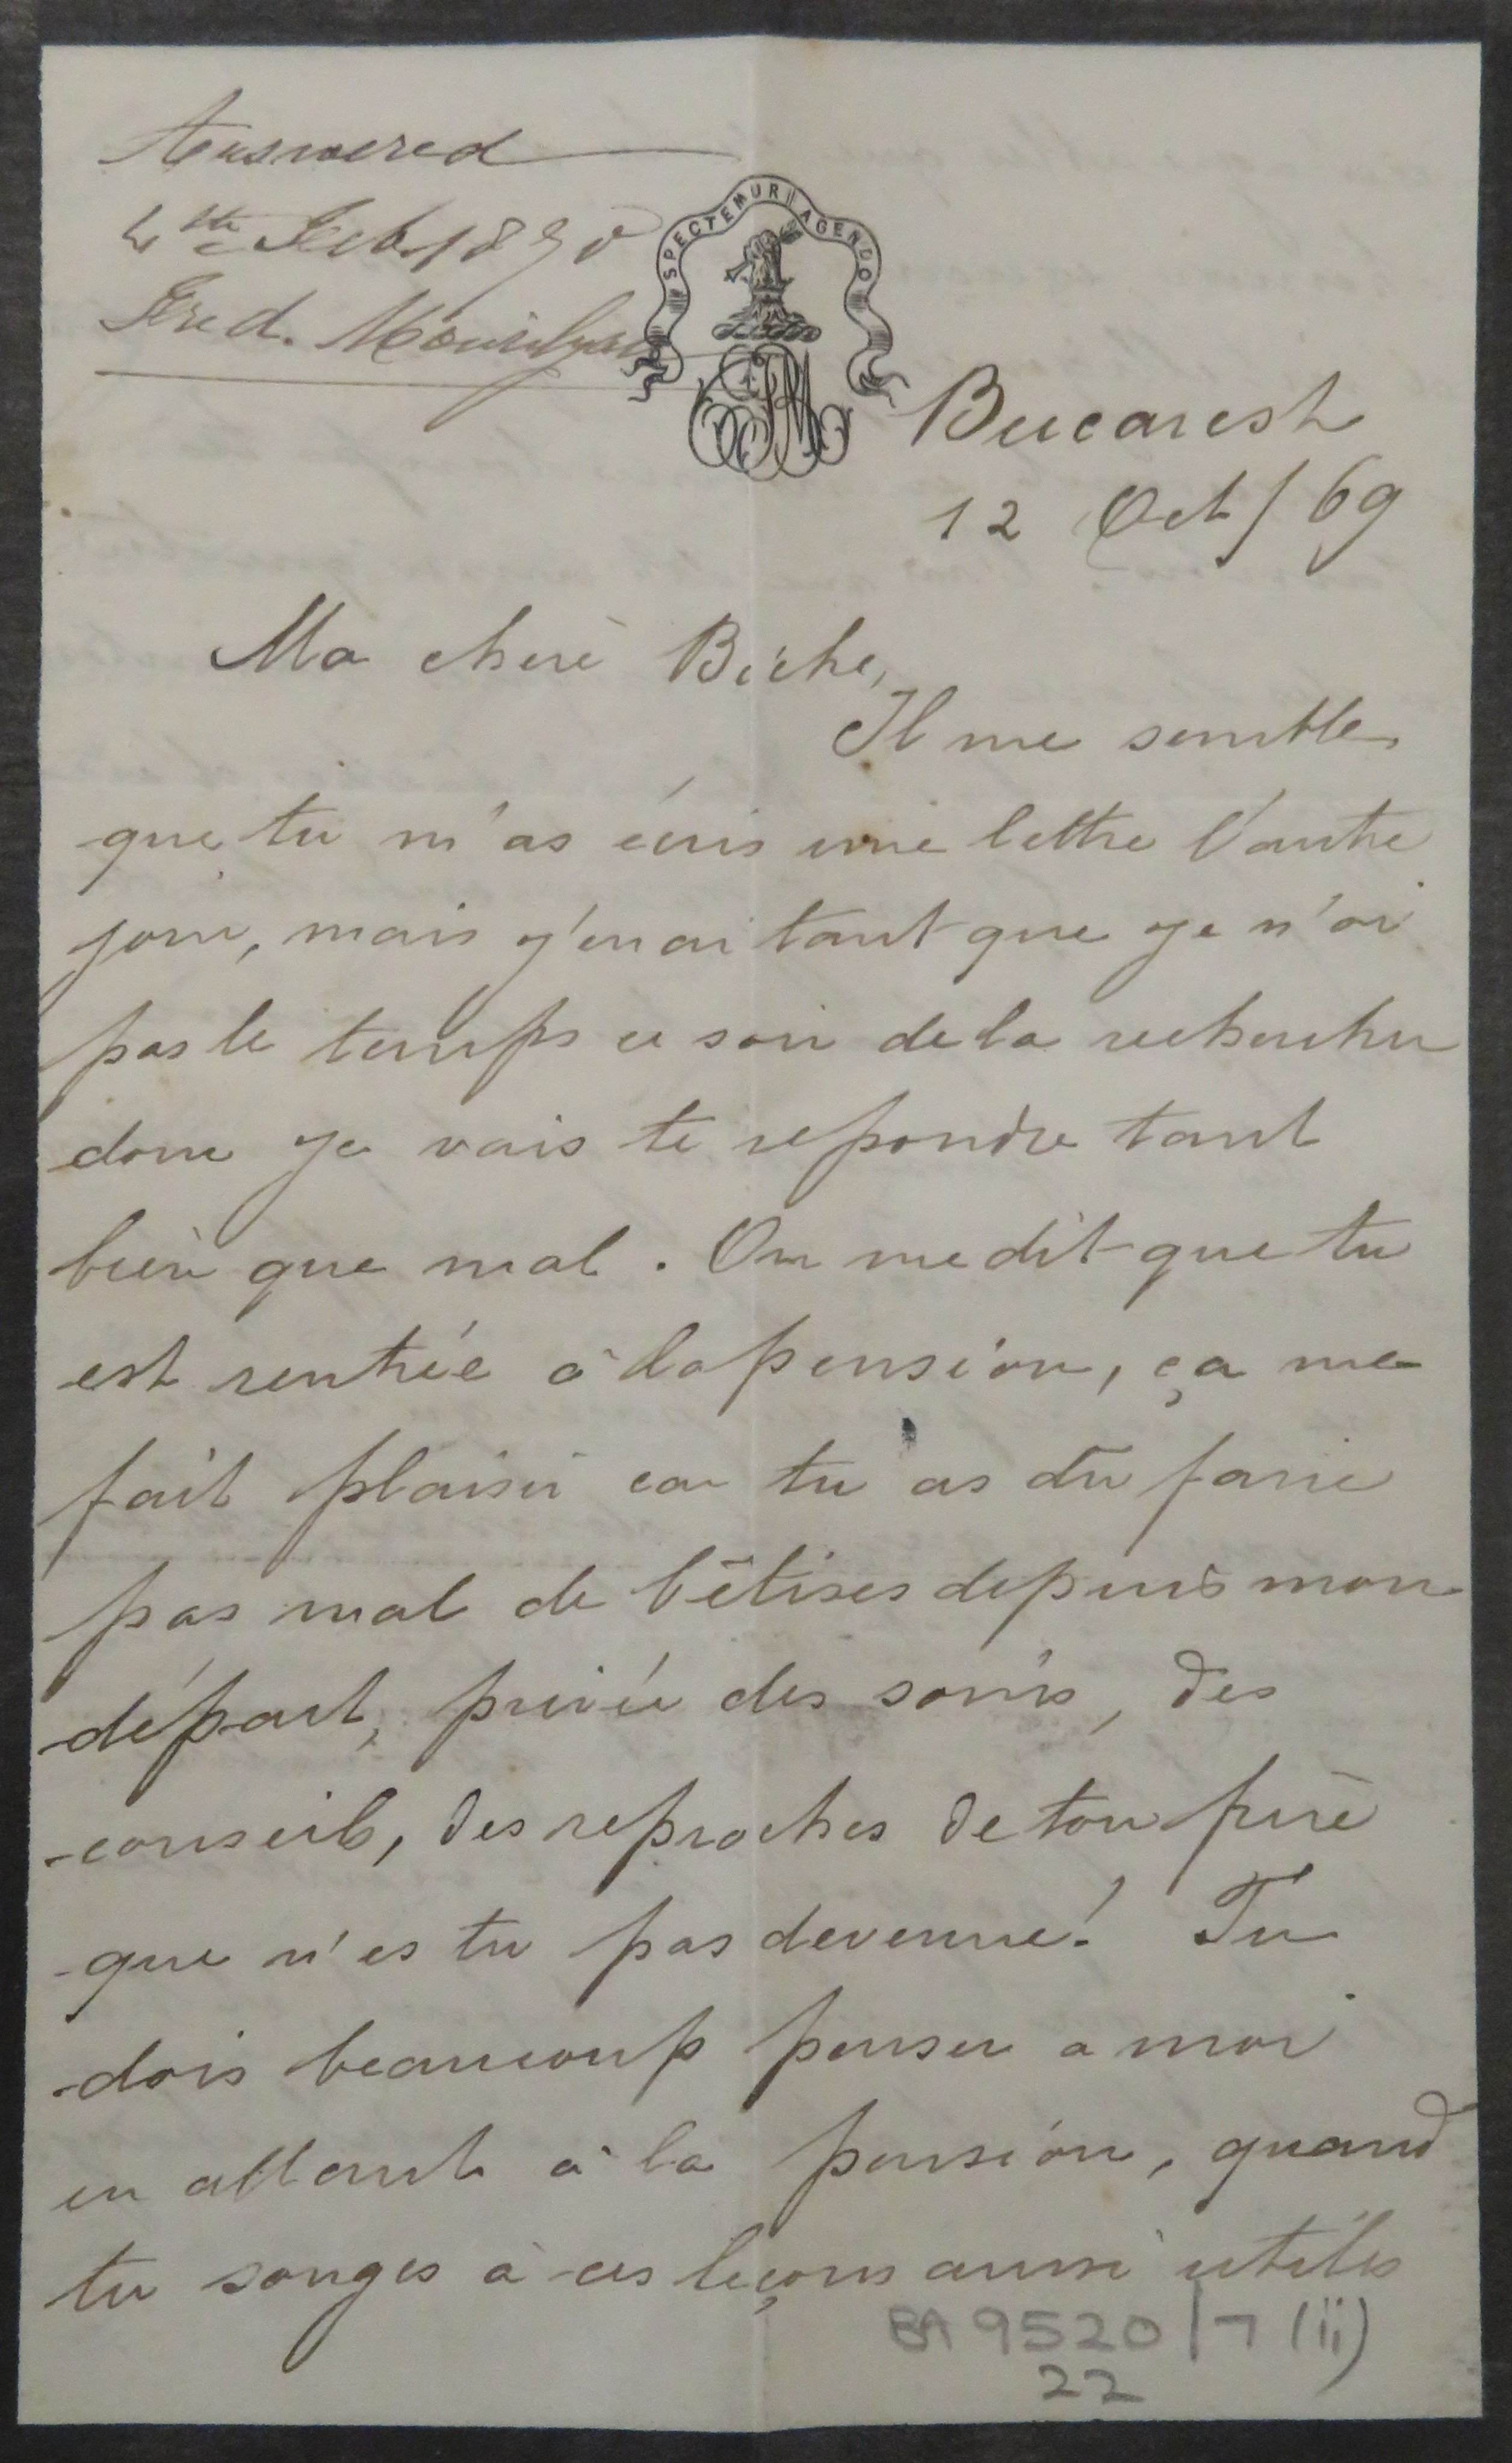 Answered
4th Feb 1890
Fred.
SPECTEMUR AGENDO
Bucarest
12 Oct / 69
Ma cherè Biche,
Il me semble
que tu m'as écris une lettre l'autre
jour, mais j'en ai tant que je n'ai
pas le temps ce soir de la rechercher
donc je vais te repondre tant
bien que mal. On me dit que tu
est rentrée à la pension, ça me
fait plaisir car tu as dû faire
pas mal de bêtises depuis mon
départ, privée des soins, des
conseils, des reproches de ton père
que n'es tu pas devenue! Tu
dois beaucoup penser a moi
en allant à la pension, quand
tu songes à ces leçons aussi utiles
BA 9520/7 (ii)
22